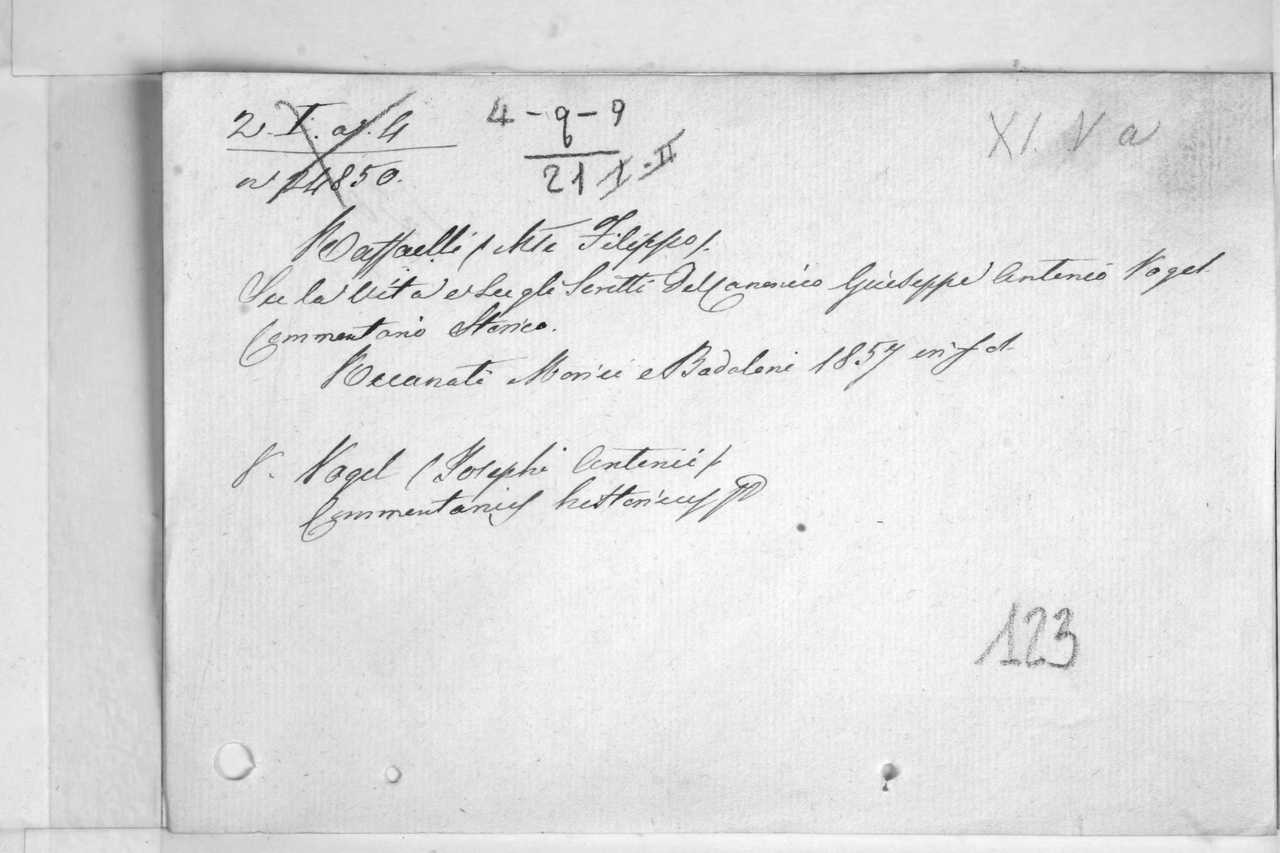 2. I. a. 4
n 14850.
4-q-9
21 I-II
XI. V a
Raffaelli / Mse Filippo /.
Su la Vita e su gli Scritti Del Canonico Giuseppe Antonio Vogel
Commentario Storico.
Recanati Morici e Badaloni 1857 in f d
V. Vogel / Josephi Antonii /
Commentarius historicus
123